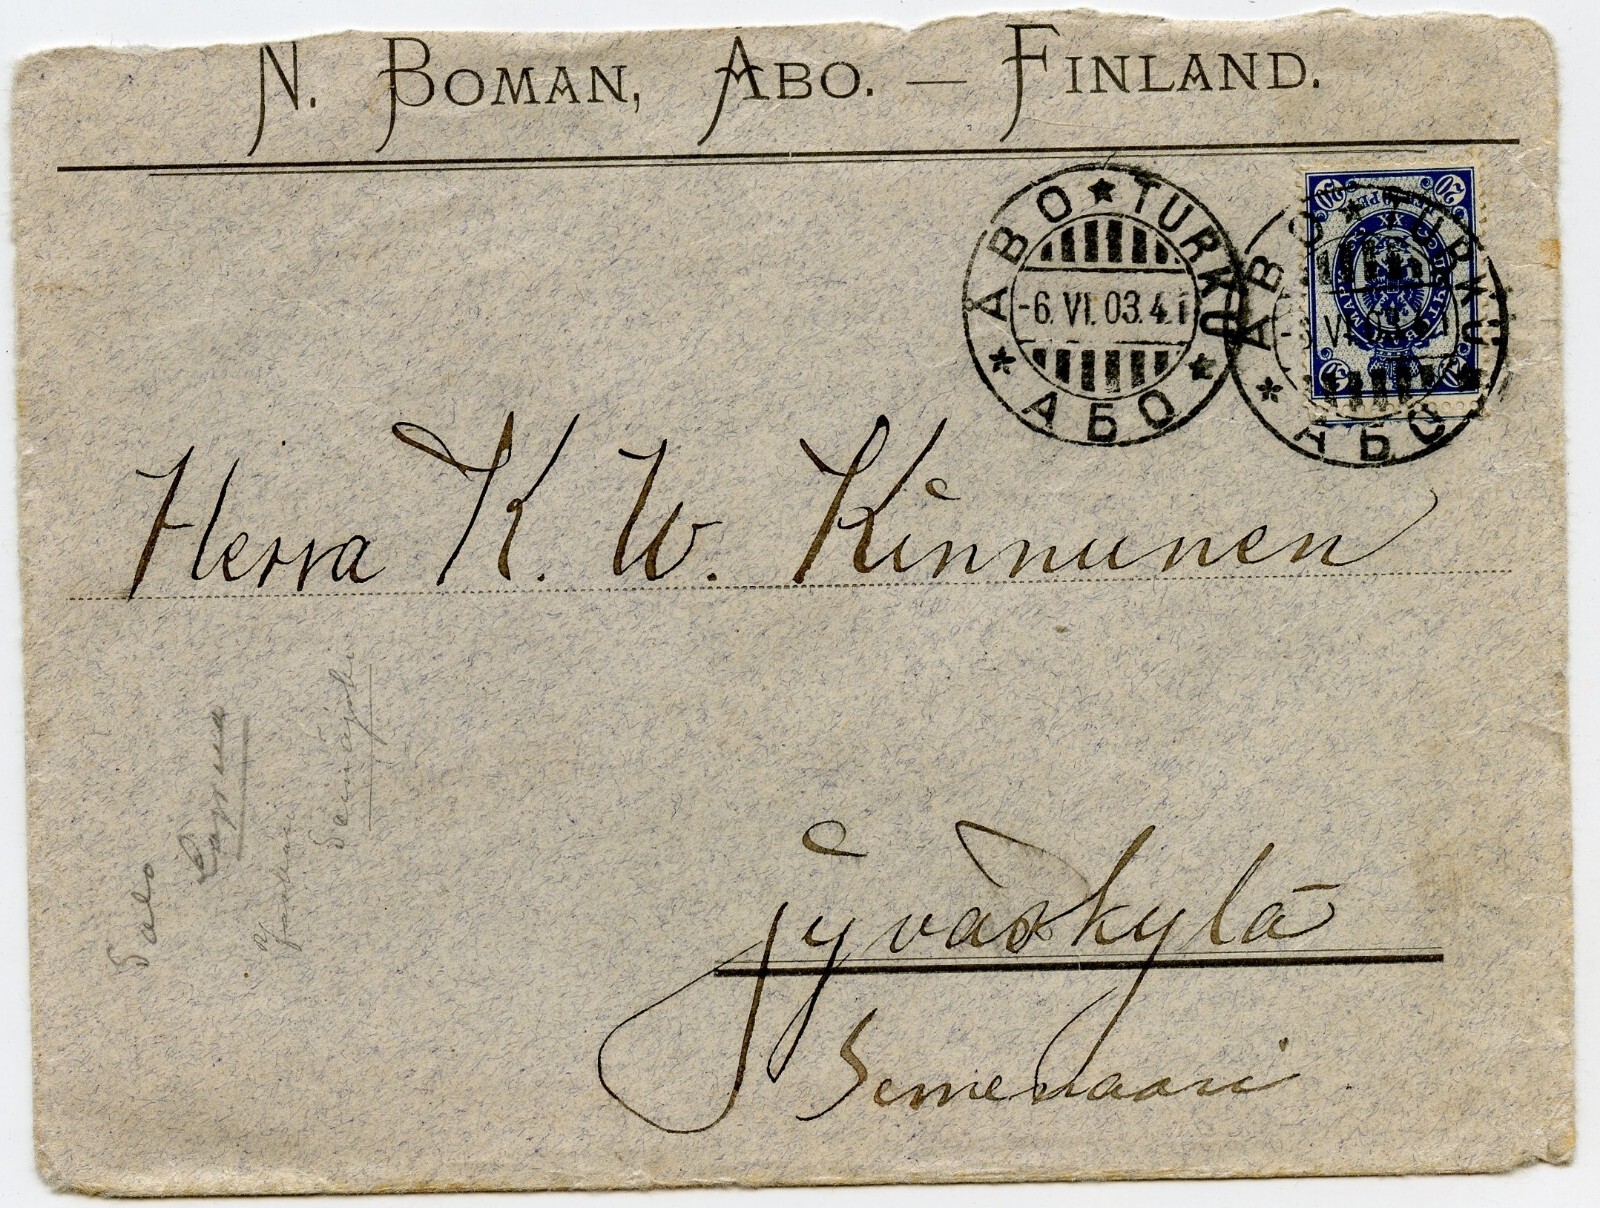 N. BOMAN, ABO. — FINLAND.
ABO ★ TURKU ★ АБО ★
-6. VI. 03. 4. 1
ABO ★ TURKU АБО ★
20 20
Herra K. W. Kinnunen
Jyväskylä
Semenaari
Salo
Seinäjoki